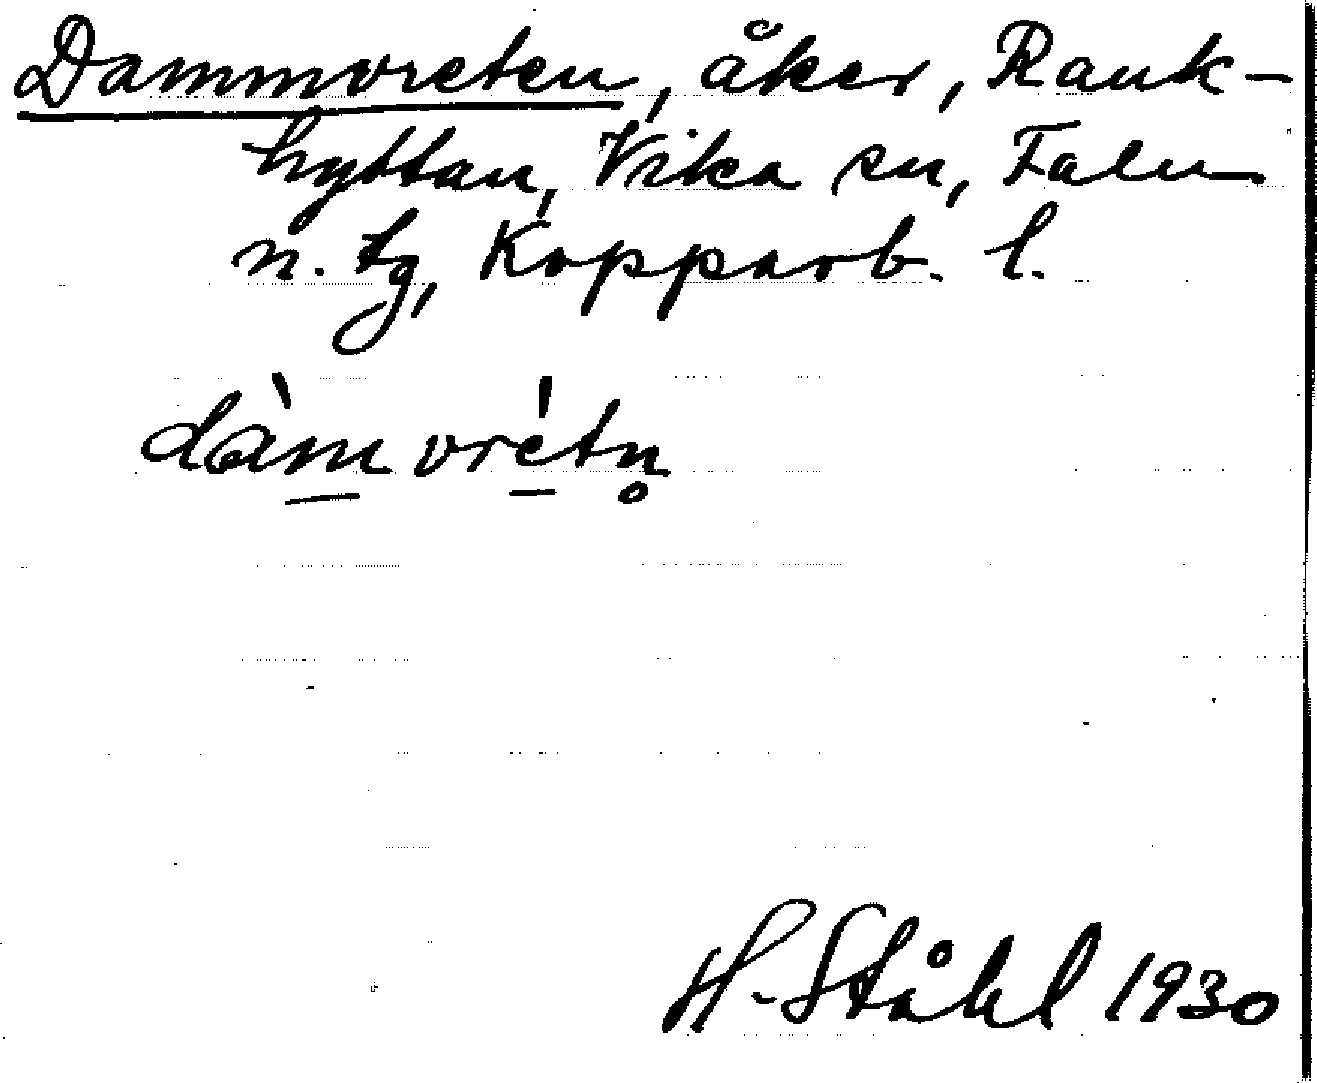 Dammvreten, åker, Rank-
hyttan, Vika sn, Falu
n. tg, Kopparb. l.
dàm̲vré̲tn̥
H. Ståhl 1930